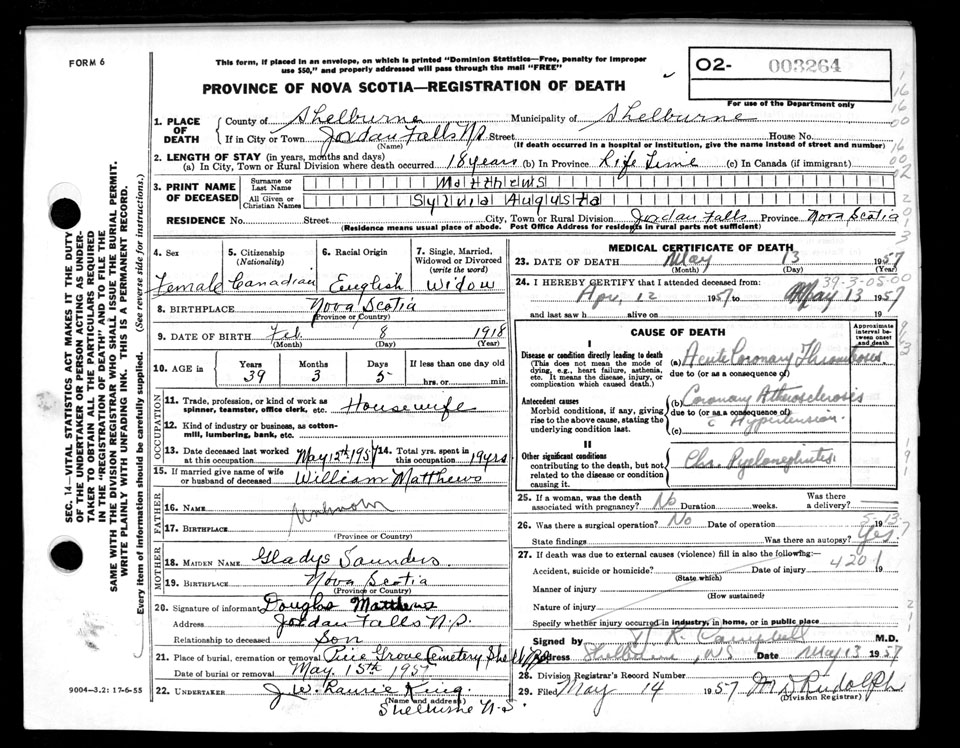 FORM 6
This form, if placed in an envelope, on which is printed "Dominion Statistics—Free, penalty for improper
use $50," and properly addressed will pass through the mail "FREE"
O2- 003264
For use of the Department only
PROVINCE OF NOVA SCOTIA—REGISTRATION OF DEATH
1. PLACE OF DEATH
County of Shelburne Municipality of Shelburne
If in City or Town Jordan Falls N.S. Street House No.
(Name) (If death occurred in a hospital or institution, give the name instead of street and number)
2. LENGTH OF STAY (in years, months and days)
(a) In City, Town or Rural Division where death occurred 18 years (b) In Province Life Time (c) In Canada (if immigrant)
3. PRINT NAME OF DECEASED
Surname or Last Name Matthews
All Given or Christian Names Sylvia Augusta
RESIDENCE No. Street City, Town or Rural Division Jordan Falls Province Nova Scotia
(Residence means usual place of abode. Post Office Address for residents in rural parts not sufficient)
4. Sex Female
5. Citizenship (Nationality) Canadian
6. Racial Origin English
7. Single, Married, Widowed or Divorced (write the word) Widow
8. BIRTHPLACE Nova Scotia
(Province or Country)
9. DATE OF BIRTH Feb. 8 1918
(Month) (Day) (Year)
10. AGE in Years 39 Months 3 Days 5 If less than one day old
hrs. or min.
OCCUPATION
11. Trade, profession, or kind of work as
spinner, teamster, office clerk, etc. Housewife
12. Kind of industry or business, as cotton-
mill, lumbering, bank, etc.
13. Date deceased last worked at this occupation May 12th 1957
14. Total yrs. spent in this occupation 19 yrs
15. If married give name of wife
or husband of deceased William Matthews
FATHER
16. NAME Unknown
17. BIRTHPLACE
(Province or Country)
MOTHER
18. MAIDEN NAME Gladys Saunders
19. BIRTHPLACE Nova Scotia
(Province or Country)
20. Signature of informant Douglas Matthews
Address Jordan Falls N.S.
Relationship to deceased Son
21. Place of burial, cremation or removal Pine Grove Cemetery Shelb
Date of burial or removal May 15th 1957
22. UNDERTAKER J. W. Laurie King
(Name and address)
Shelburne N.S.
MEDICAL CERTIFICATE OF DEATH
23. DATE OF DEATH May 13 1957
(Month) (Day) (Year)
39-3-05-0
24. I HEREBY CERTIFY that I attended deceased from:
Apr. 12 1957 to May 13 1957
and last saw h alive on 19
CAUSE OF DEATH
Approximate interval between onset and death
I
Disease or condition directly leading to death (a) Acute Coronary Thrombosis
(This does not mean the mode of dying, e.g., heart failure, asthenia, etc. It means the disease, injury, or complication which caused death.)
due to (or as a consequence of)
Antecedent causes
Morbid conditions, if any, giving rise to the above cause, stating the underlying condition last.
(b) Coronary Atherosclerosis
due to (or as a consequence of)
c Hypertension
(c)
II
Other significant conditions
contributing to the death, but not related to the disease or condition causing it.
Chr. Pyelonephritis
25. If a woman, was the death associated with pregnancy? No Duration weeks. Was there a delivery?
26. Was there a surgical operation? No Date of operation 5-13 1957
State findings Was there an autopsy? Yes
27. If death was due to external causes (violence) fill in also the following:
4201
Accident, suicide or homicide? Date of injury 19
(State which)
Manner of injury
(How sustained)
Nature of injury
Specify whether injury occurred in industry, in home, or in public place
Signed by R. Campbell M.D.
Address Shelburne, NS Date May 13 1957
28. Division Registrar's Record Number
29. Filed May 14 1957 M D Rudolph
(Division Registrar)
SEC. 14—VITAL STATISTICS ACT MAKES IT THE DUTY
OF THE UNDERTAKER OR PERSON ACTING AS UNDER-
TAKER TO OBTAIN ALL THE PARTICULARS REQUIRED
IN THE "REGISTRATION OF DEATH" AND TO FILE THE
SAME WITH THE DIVISION REGISTRAR WHO SHALL ISSUE THE BURIAL PERMIT.
WRITE PLAINLY WITH UNFADING INK. THIS IS A PERMANENT RECORD.
Every item of information should be carefully supplied. (See reverse side for instructions.)
9004—3.2: 17-6-55